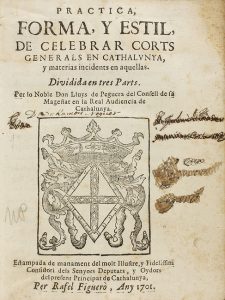 PRACTICA,
FORMA, Y ESTIL,
DE CELEBRAR CORTS
GENERALS EN CATHALVNYA,
y materias incidents en aquellas.
Dividida en tres Parts.
Per lo Noble Don Lluys de Peguera del Consell de sa
Magestat en la Real Audiencia de
Cathalunya.
Estampada de manament del molt Illustre, y Fidelissim
Consistori dels Senyors Deputats, y Oydors
del present Principat de Cathalunya,
Per Rafel Figuerò, Any 1701.